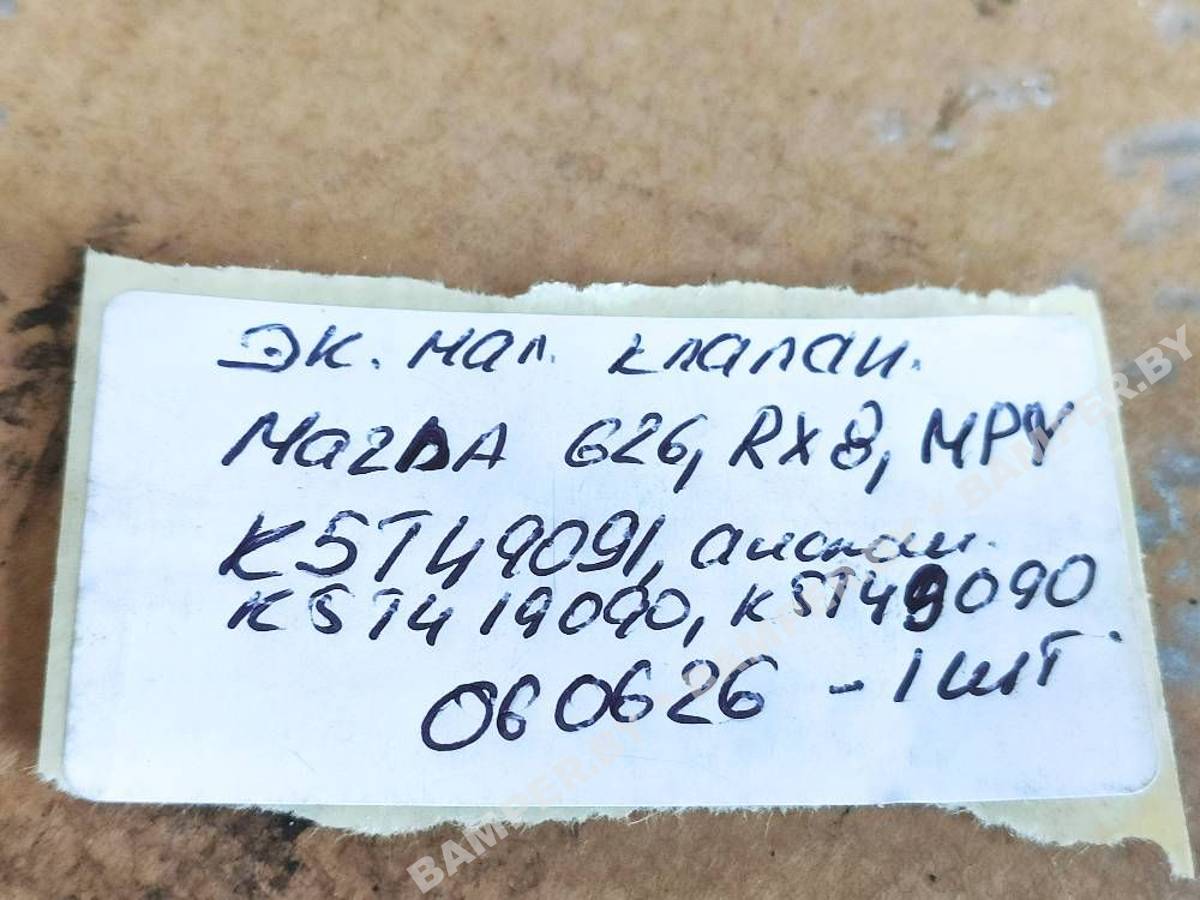 Эк. маг. клапан.
MAZDA 626, RX8, MPV
K5T49091, аислан.
K5T419090, K5T49090
060626 - 1 шт
BAMPER.BY
BAMPER.BY